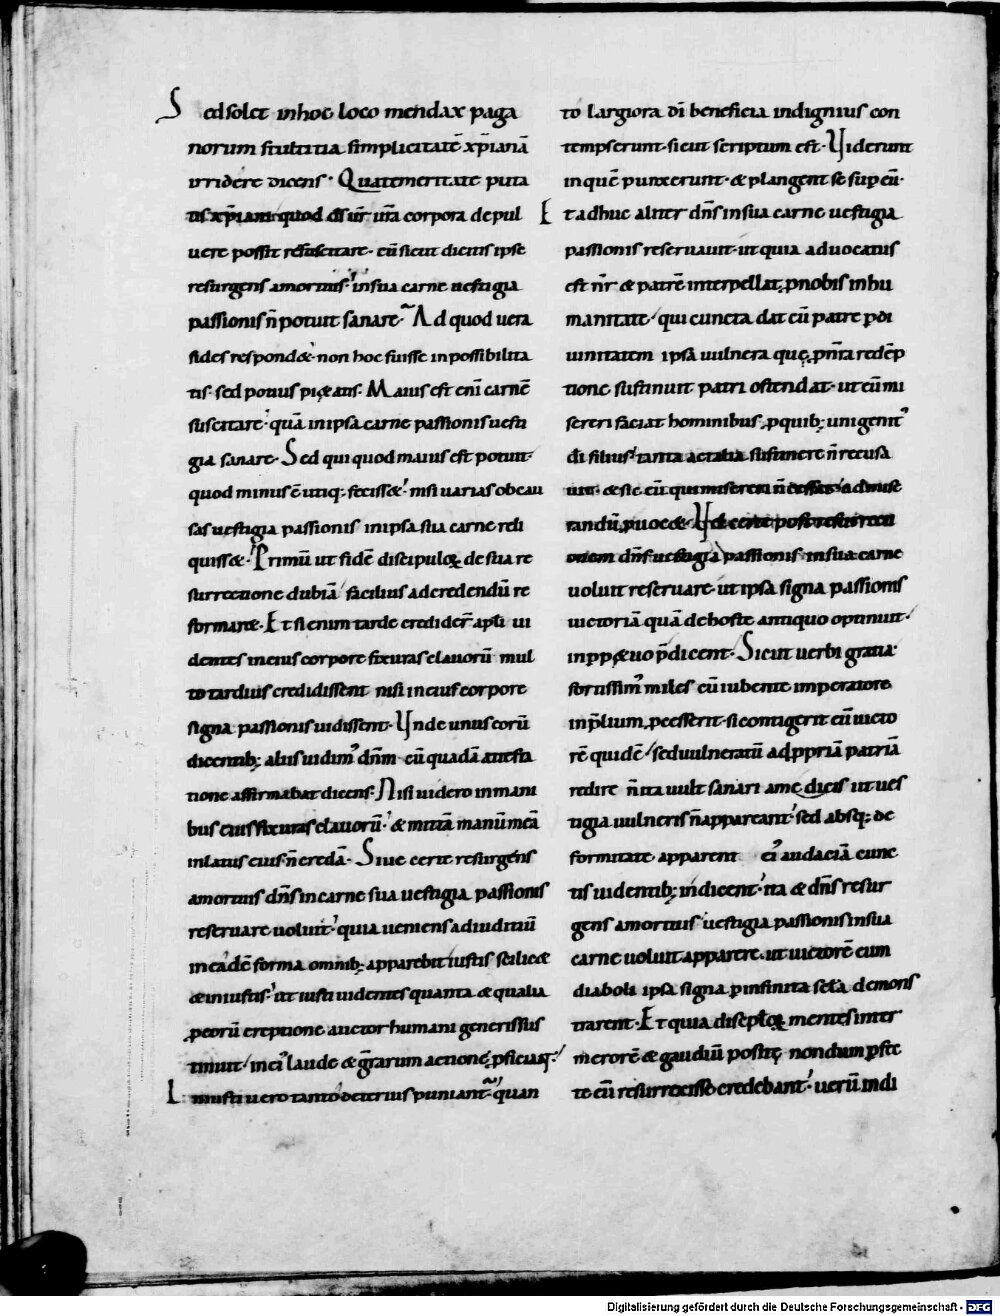 Sed solet in hoc loco mendax paga
norum stultitia simplicitatē xp̄ianā
irridere dicens. Qua temeritate puta
tis xp̄iani quod d̄s ur̄ ur̄a corpora de pul
uere possit resuscitare. cū sicut dicitis ipse
resurgens a mortuis. in sua carne uestigia
passionis n̄ potuit sanare. Ad quod uera
fides respond&. non hoc fuisse inpossibilita
tis. sed potius pi&atis. Maius est enī carnē
suscitare. quā in ipsa carne passionis uesti
gia sanare. Sed qui quod maius est potuit.
quod minus ē utiq; feciss&. nisi uarias ob cau
sas uestigia passionis in ipsa sua carne reli
quiss&. Primū ut fidē discipuloꝝ de sua re
surrectione dubiā facilius ad credendū re
formar&. Et si enim tarde credider̄ apl̄i ui
dentes in eius corpore fixuras clauorū mul
to tardius credidissent nisi in eius corpore
signa passionis uidissent. Unde unus eorū
dicentib; aliis uidim᾽ dn̄m cū quadā attesta
tione affirmabat dicens. Nisi uidero in mani
bus eius fixuras clauorū. & mittā manū meā
in latus eius. n̄ credā. Siue certe resurgens
a mortuis dn̄s in carne sua uestigia passionis
reseruare uoluit. quia ueniens ad iuditiū
in eadē forma omnib; apparebit iustis scilic&
& iniustis. ut iusti uidentes quanta & qualia
ꝑ eorū ereptione auctor humani generis sus
tinuit. in ei᾽ laude & gr̄arum actione ꝓficiaꝗ:
Iniusti uero tanto deterius puniant᷑. quan
to largiora dī beneficia indignius con
tempserunt. sicut scriptum est. Uiderunt
in quē punxerunt. & plangent se sup eū.
Et adhuc aliter dn̄s in sua carne uestigia
passionis reseruauit. ut quia aduocatus
est nr̄ & patrē interpellat ꝓ nobis in hu
manitate. qui cuncta dat cū patre ꝑ di
uinitatem ipsa uulnera quę ꝓ nr̄a redēp
tione sustinuit patri ostendat. ut eū mi
sereri faciat hominibus. ꝓ quib; unigenit᾽
dī filius. tanta ac talia sustinere n̄ recusa
uit. & sic eū qui misereri n̄ desistit ad mise
randū ꝓuoc&. Uel certe post resurrecti
onem dn̄s uestigia passionis in sua carne
uoluit reseruare. ut ipsa signa passionis
uictoriā quā de hoste antiquo optinuit.
in ppetuo p̄dicent. Sicut uerbi gratia.
fortissim᾽ miles cū iubente imperatore
in p̄lium ꝓcesserit. si contigerit eū uicto
rē quidē. sed uulneratū ad ꝓpriā patriā
redire n̄ ita uult sanari a medicis ut ues
tigia uulneris n̄ appareant. sed absq; de
formitate apparent ei᾽ audaciā cunc
tis uidentib; indicent. ita & dn̄s resur
gens a mortuis uestigia passionis in sua
carne uoluit apparere. ut uictorē eum
diaboli ipsa signa ꝑ infinita sc̄la demons
trarent. Et quia discip̄loꝝ mentes inter
merorē & gaudiū positę nondum ꝑfec
te eū resurrexisse credebant. uerū indi